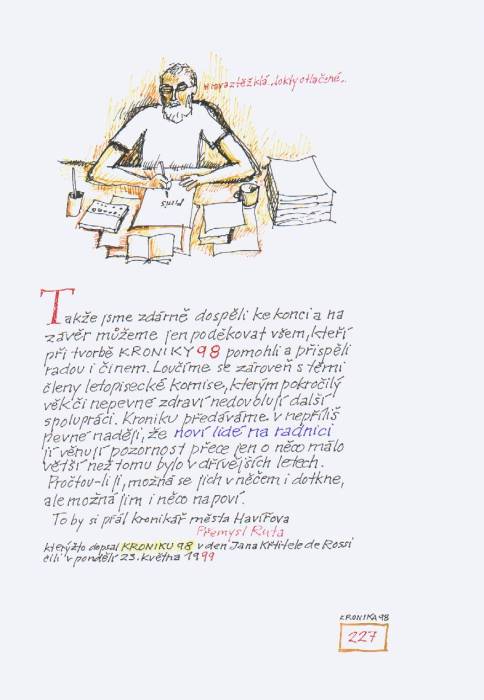 ruka ztěžklá.. lokty otlačené..
PF 115
Takže jsme zdárně dospěli ke konci a na
závěr můžeme jen poděkovat všem, kteří
při tvorbě KRONIKY 98 pomohli a přispěli
radou i činem. Loučíme se zároveň s těmi
členy letopisecké komise, kterým pokročilý
věk či nepevné zdraví nedovolují další
spolupráci. Kroniku předáváme v nepříliš
pevné naději, že noví lidé na radnici
jí věnují pozornost přece jen o něco málo
větší než tomu bylo v dřívějších letech.
Pročtou-li ji, možná se jich v něčem i dotkne,
ale možná jim i něco napoví.
To by si přál kronikář města Havířova
Přemysl Ruta
kterýžto dopsal KRONIKU 98 v den Jana Křtitele de Rossi
čili v pondělí 23. května 1999
KRONIKA 98
227